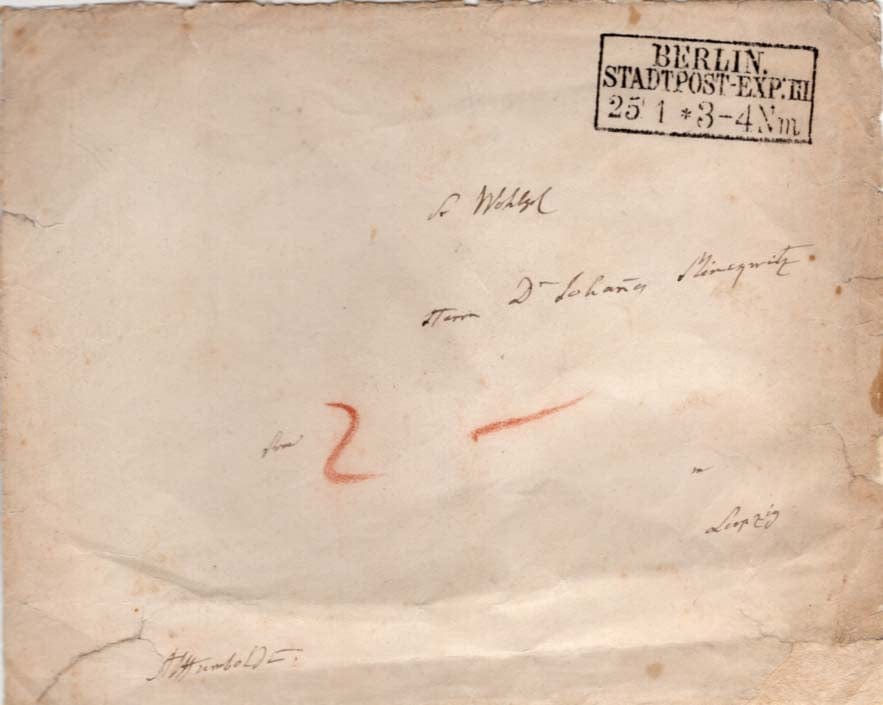 BERLIN.
STADTPOST-EXP. III
25 1 * 3-4 Nm
Sr Wohlgb
Herrn Dr Johan̄es Minckwitz
2 —
in
Leipzig
AvHumboldt.